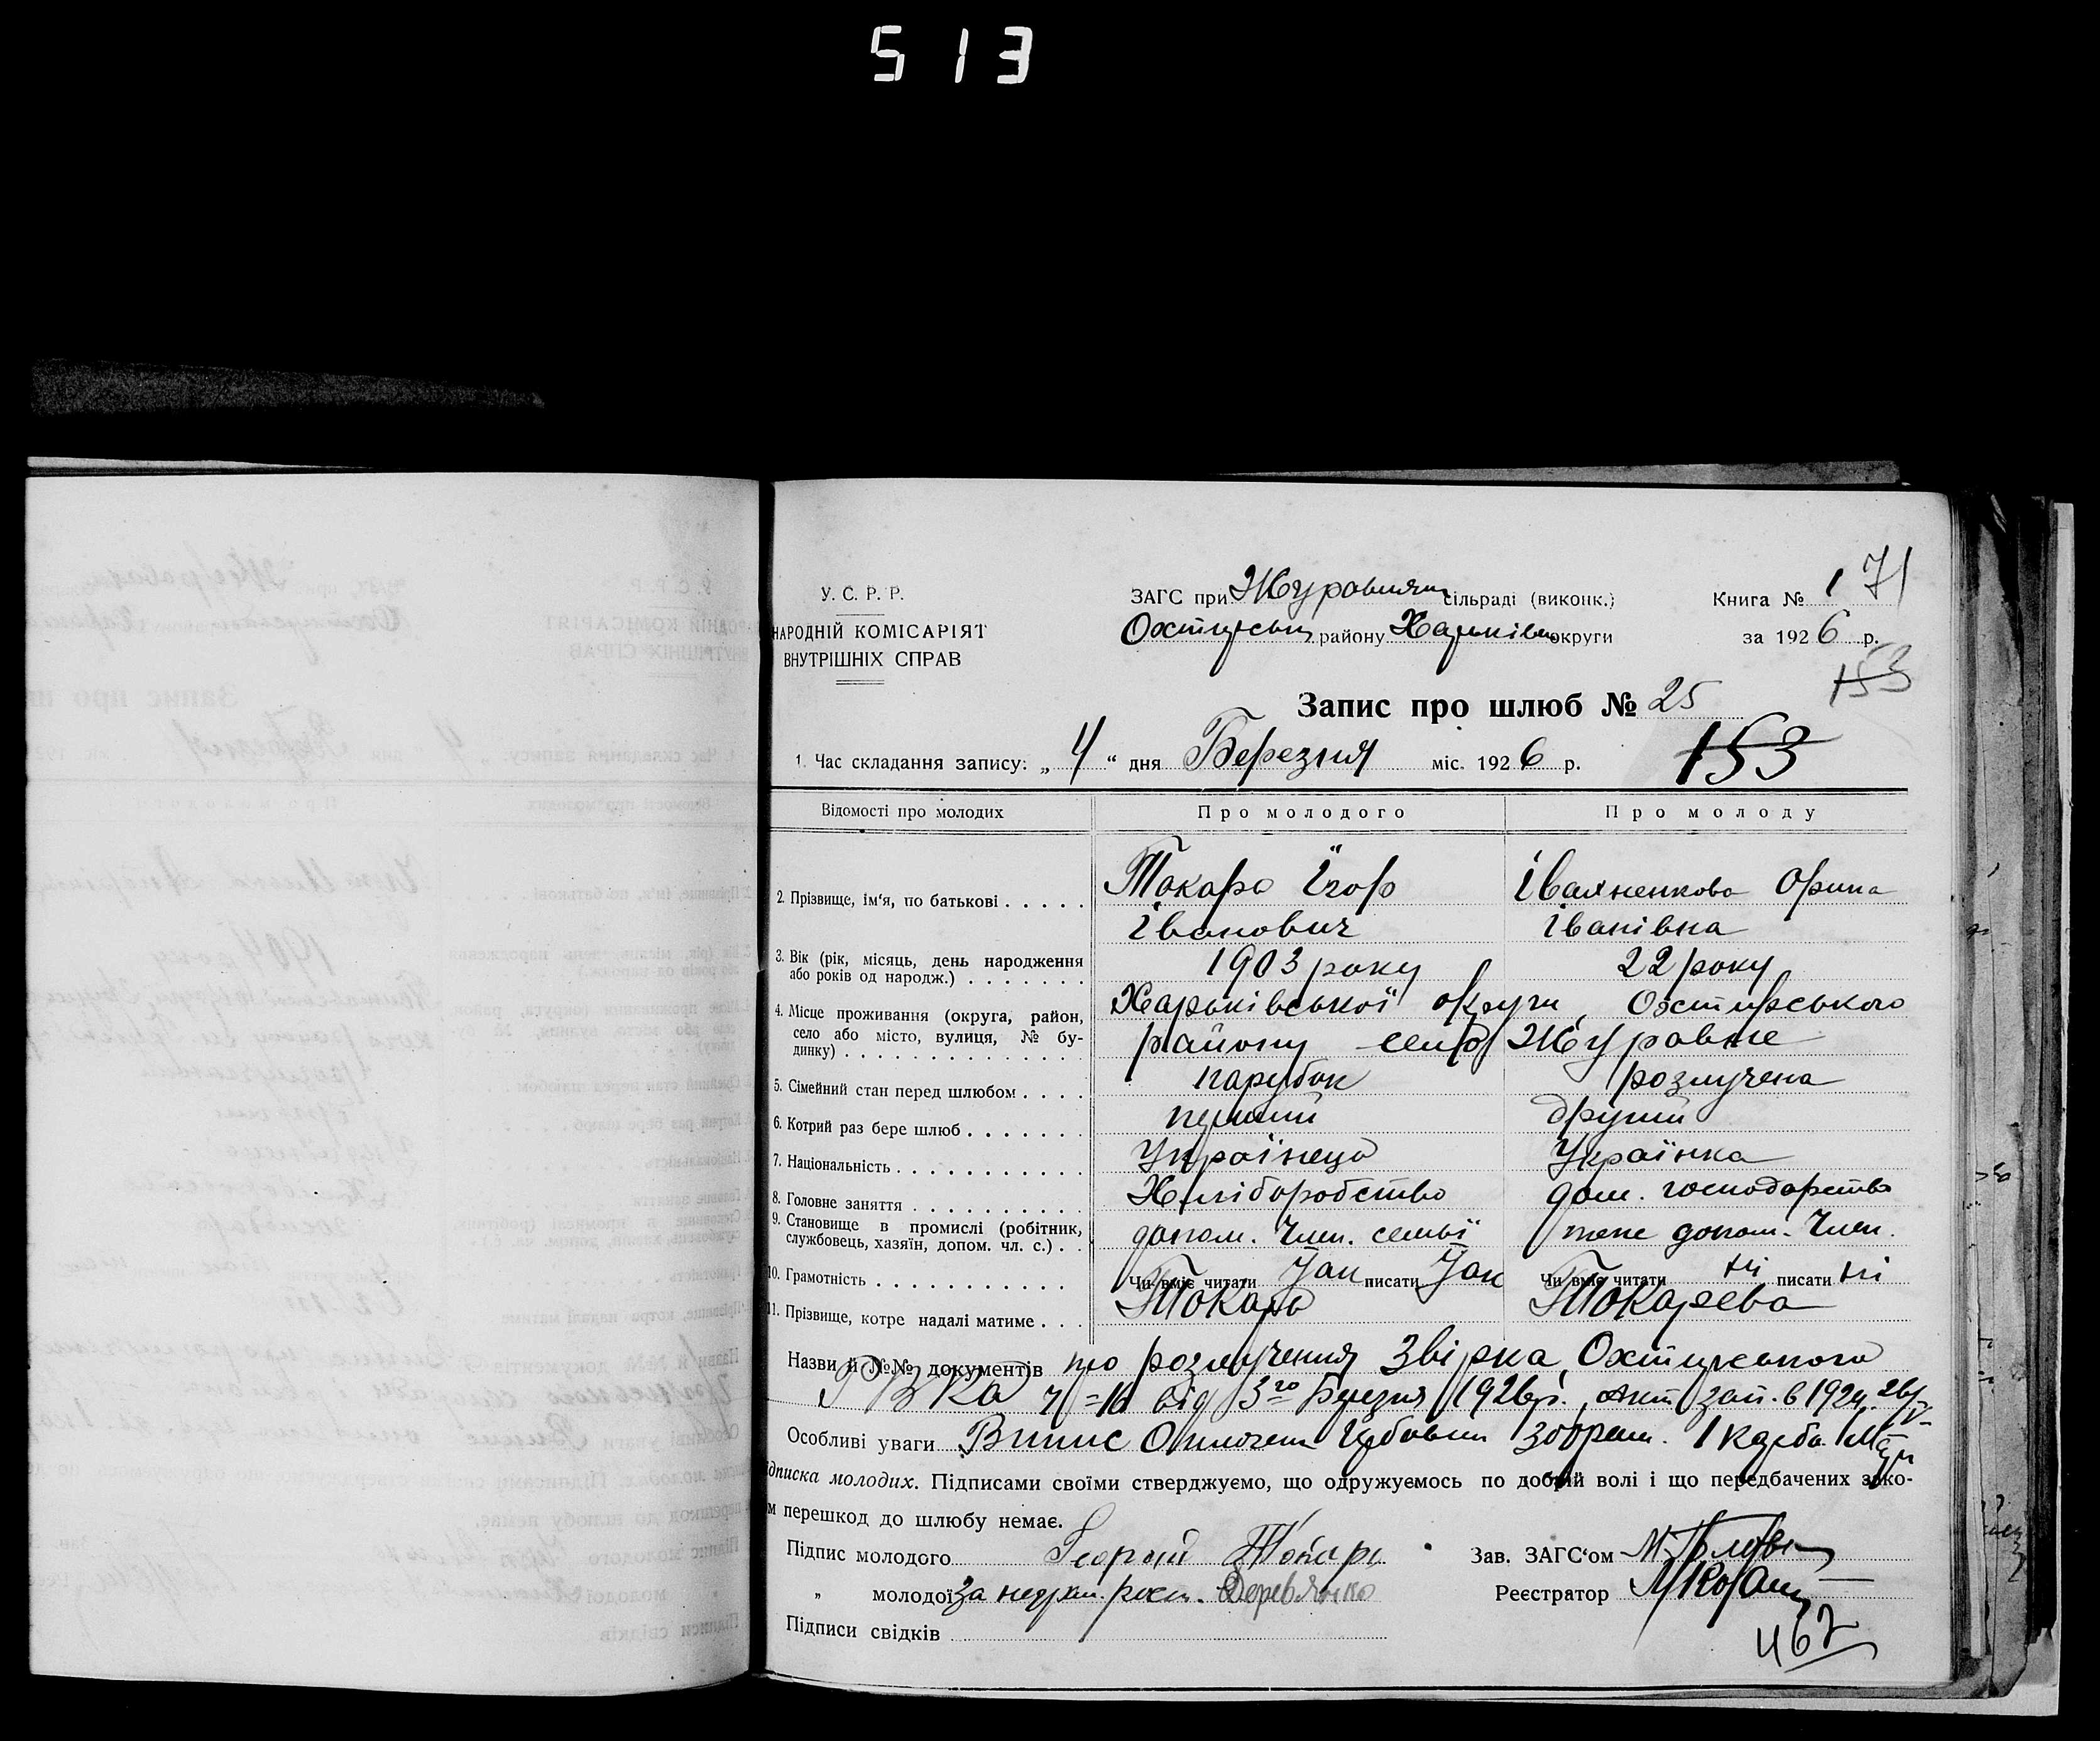 513
У. С. Р. Р.
НАРОДНІЙ КОМІСАРІЯТ
ВНУТРІШНІХ СПРАВ
ЗАГС при Журавнян сільраді (виконк.)
Охтирськ району Харьківськ округи
Книга № 1 71
за 1926 р.
153
Запис про шлюб № 25
1. Час складання запису: „ 4 “ дня Березня міс. 1926 р. 153
Відомості про молодих Про молодого Про молоду
2. Прізвище, ім'я, по батькові . . . . . Токарь Ігор Орина
Іванович Іванівна
3. Вік (рік, місяць, день народження 1903 року 22 року
або років од народж.) . . . . . . .
4. Місце проживання (округа, район, Харьківської округи, Охтирського
село або місто, вулиця, № бу- району село Журавне
динку) . . . . . . . . . . . . . .
5. Сімейний стан перед шлюбом . . . . парубок розлучена
6. Котрий раз бере шлюб . . . . . . . перший другий
7. Національність . . . . . . . . . . . Українець Українка
8. Головне заняття . . . . . . . . . . Хліборобство дом. господарство
9. Становище в промислі (робітник, допом. член. семьї теж допом. член.
службовець, хазяїн, допом. чл. с.) . .
10. Грамотність . . . . . . . . . . . Чи вміє читати Так писати Так Чи вміє читати ні писати ні
11. Прізвище, котре надалі матиме . . . Токарь Токарева
Назви й №№ документів про розлучення Звірка Охтирського
РВКа ч=16 від 3го Березня 1926р., акт зап. в 1924
Особливі уваги Випис 1 карб.
ідписка молодих. Підписами своїми стверджуємо, що одружуємось по добрій волі і що передбачених зако-
м перешкод до шлюбу немає.
Підпис молодого Георгий Токарь Зав. ЗАГС'ом
„ молодої за неграм. росп. Деревянко Реєстратор
Підписи свідків
462